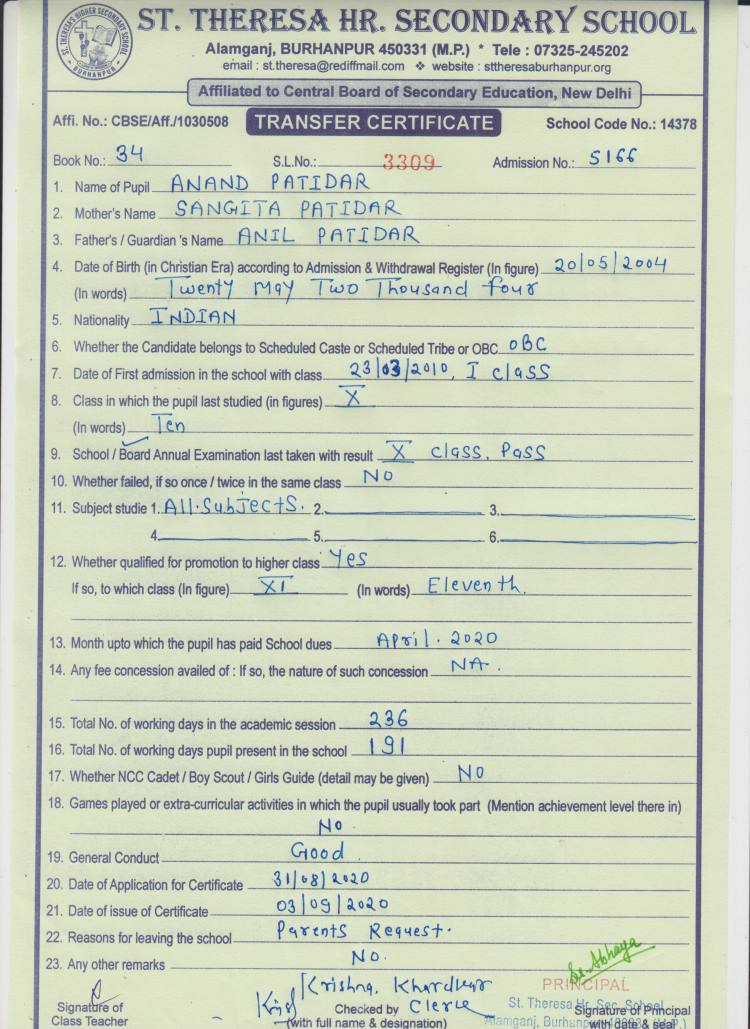 ST. THERESA HR. SECONDARY SCHOOL
ST. THERESA'S HIGHER SECONDARY SCHOOL
BURHANPUR
Alamganj, BURHANPUR 450331 (M.P.) * Tele : 07325-245202
email : st.theresa@rediffmail.com ❖ website : sttheresaburhanpur.org
Affiliated to Central Board of Secondary Education, New Delhi
Affi. No.: CBSE/Aff./1030508 TRANSFER CERTIFICATE School Code No.: 14378
Book No.: 34 S.L.No.: 3309 Admission No.: 5166
1. Name of Pupil ANAND PATIDAR
2. Mother's Name SANGITA PATIDAR
3. Father's / Guardian 's Name ANIL PATIDAR
4. Date of Birth (in Christian Era) according to Admission & Withdrawal Register (In figure) 20/05/2004
(In words) Twenty May Two Thousand four
5. Nationality INDIAN
6. Whether the Candidate belongs to Scheduled Caste or Scheduled Tribe or OBC OBC
7. Date of First admission in the school with class 23/03/2010, I class
8. Class in which the pupil last studied (in figures) X
(In words) Ten
9. School / Board Annual Examination last taken with result X class. Pass
10. Whether failed, if so once / twice in the same class NO
11. Subject studie 1. All. Subjects. 2. 3.
4. 5. 6.
12. Whether qualified for promotion to higher class Yes
If so, to which class (In figure) XI (In words) Eleventh.
13. Month upto which the pupil has paid School dues April. 2020
14. Any fee concession availed of : If so, the nature of such concession NA.
15. Total No. of working days in the academic session 236
16. Total No. of working days pupil present in the school 191
17. Whether NCC Cadet / Boy Scout / Girls Guide (detail may be given) NO
18. Games played or extra-curricular activities in which the pupil usually took part (Mention achievement level there in)
No.
19. General Conduct Good.
20. Date of Application for Certificate 31/08/2020
21. Date of issue of Certificate 03/09/2020
22. Reasons for leaving the school Parents Request.
23. Any other remarks No.
Sr. Abhaya
Krishna Khardkar
PRINCIPAL
Clerk
St. Theresa Hr. Sec. School
Signature of Class Teacher
Checked by
(with full name & designation)
Signature of Principal
with date & seal
Alamganj, Burhanpur (M.P.)